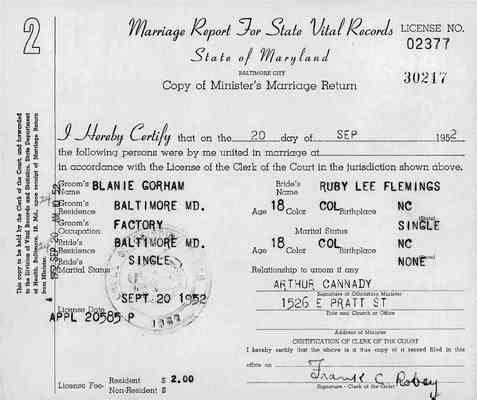 2
Marriage Report For State Vital Records
LICENSE NO.
02377
State of Maryland
BALTIMORE CITY
30217
Copy of Minister's Marriage Return
This copy to be held by the Clerk of the Court, and forwarded
to the Division of Vital Records and Statistics, State Department
of Health, Baltimore 18, Md., upon receipt of Marriage Return
from Minister.
I Hereby Certify that on the 20 day of SEP 1952
the following persons were by me united in marriage at
in accordance with the License of the Clerk of the Court in the jurisdiction shown above.
Groom's Name BLANIE GORHAM Bride's Name RUBY LEE FLEMINGS
Groom's Residence BALTIMORE MD. Age 18 COL Birthplace NC
Groom's Occupation FACTORY Marital Status SINGLE
Bride's Residence BALTIMORE MD. Age 18 COL Birthplace NC
Marital Status SINGLE NONE
Relationship to groom if any
SEPT. 20 1952
ARTHUR CANNADY
Signature of Officiating Minister
License Date
1526 E PRATT ST
APPL 20585 P
Title and Church or Office
Address of Minister
CERTIFICATION OF CLERK OF THE COURT
I hereby certify that the above is a true copy of a record filed in this
office on
License Fee- Resident $ 2.00
Non-Resident $
Frank C Robey
Signature - Clerk of the Court